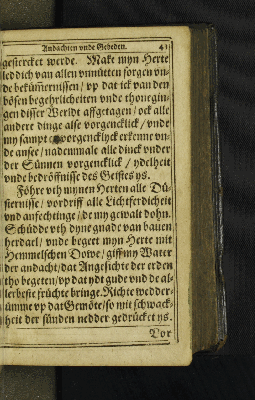 Andachten vnde Gebeden. 41
gestercket werde. Make myn Herte
led dich van allen vnnütten sorgen vn-
de bekümernissen / vp dat ick van den
bösen begehrlicheiten vnde thonegin-
gen disser Werldt affgetagen / ock alle
andere dinge alse vorgencklick / vnde
my sampt vorgencklyck erkenne vn-
de ansee / nademale alle dinck vnder
der Sünnen vorgencklick / ydelheit
vnde bedröffnisse des Geistes ys.
Föhre vth mynen Herten alle Dü-
sternisse / vordriff alle Lichtferdicheit
vnd anfechtinge / de my gewalt dohn.
Schüdde vth dyne gnade van bauen
herdael / vnde begeet myn Herte mit
Hemmelschen Dowe / giff my Water
der andacht / dat Angesichte der erden
tho begeten / vp dat ydt gude vnd de al-
lerbeste früchte bringe. Richte wedder-
ümme vp dat Gemöte / so mit schwack-
heit der sünden nedder gedrücket ys.
Vor